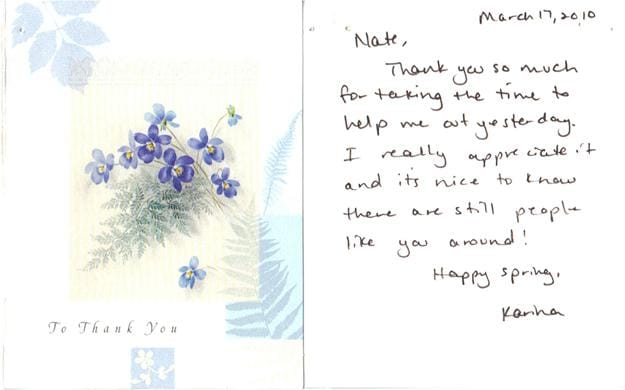 To Thank You
March 17, 2010
Nate,
Thank you so much
for taking the time to
help me out yesterday.
I really appreciate it
and it's nice to know
there are still people
like you around!
Happy spring,
Karina